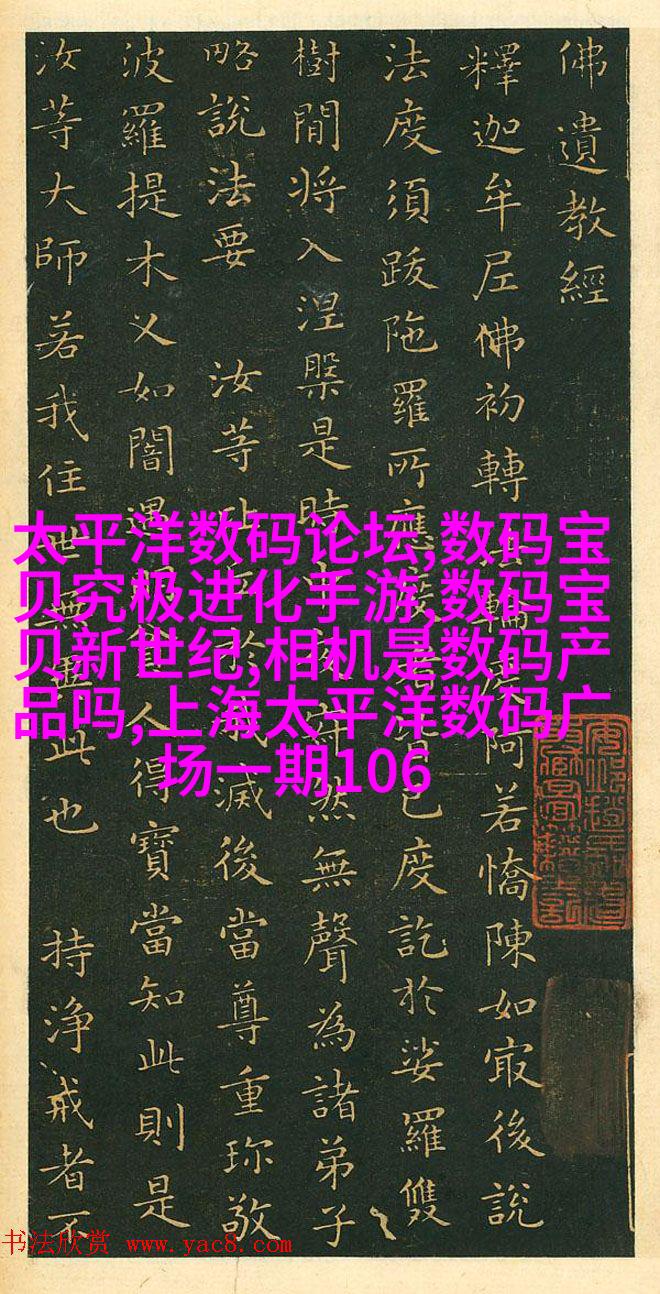 佛遺教經
釋迦牟尼佛初轉輪阿若憍陳如㝡後說
法度須跋陁羅所應度者皆已度訖於娑羅雙
樹間將入涅槃是時然無聲為諸弟子
略說法要 汝等比丘於我滅後當尊重珍敬
波羅提木叉如闇遇明貧人得寶當知此則是
汝等大師若我住世無異此也 持淨戒者不
太平洋数码论坛,数码宝
贝究极进化手游,数码宝
贝新世纪,相机是数码产
品吗,上海太平洋数码广
场一期106
书法欣赏 www.yac8.com